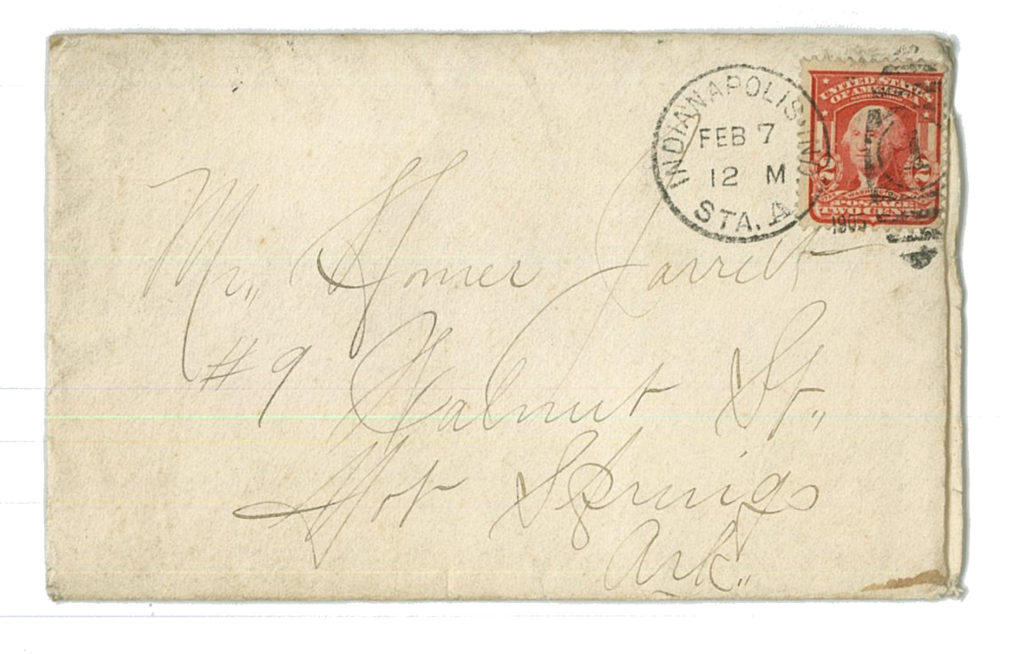 INDIANAPOLIS, IND.
FEB 7
12 M
STA. A
1905
UNITED STATES
OF AMERICA
2 2
POSTAGE
TWO CENTS
Mr. Homer Jarrett
#9 Walnut St.
Hot Springs
Ark.